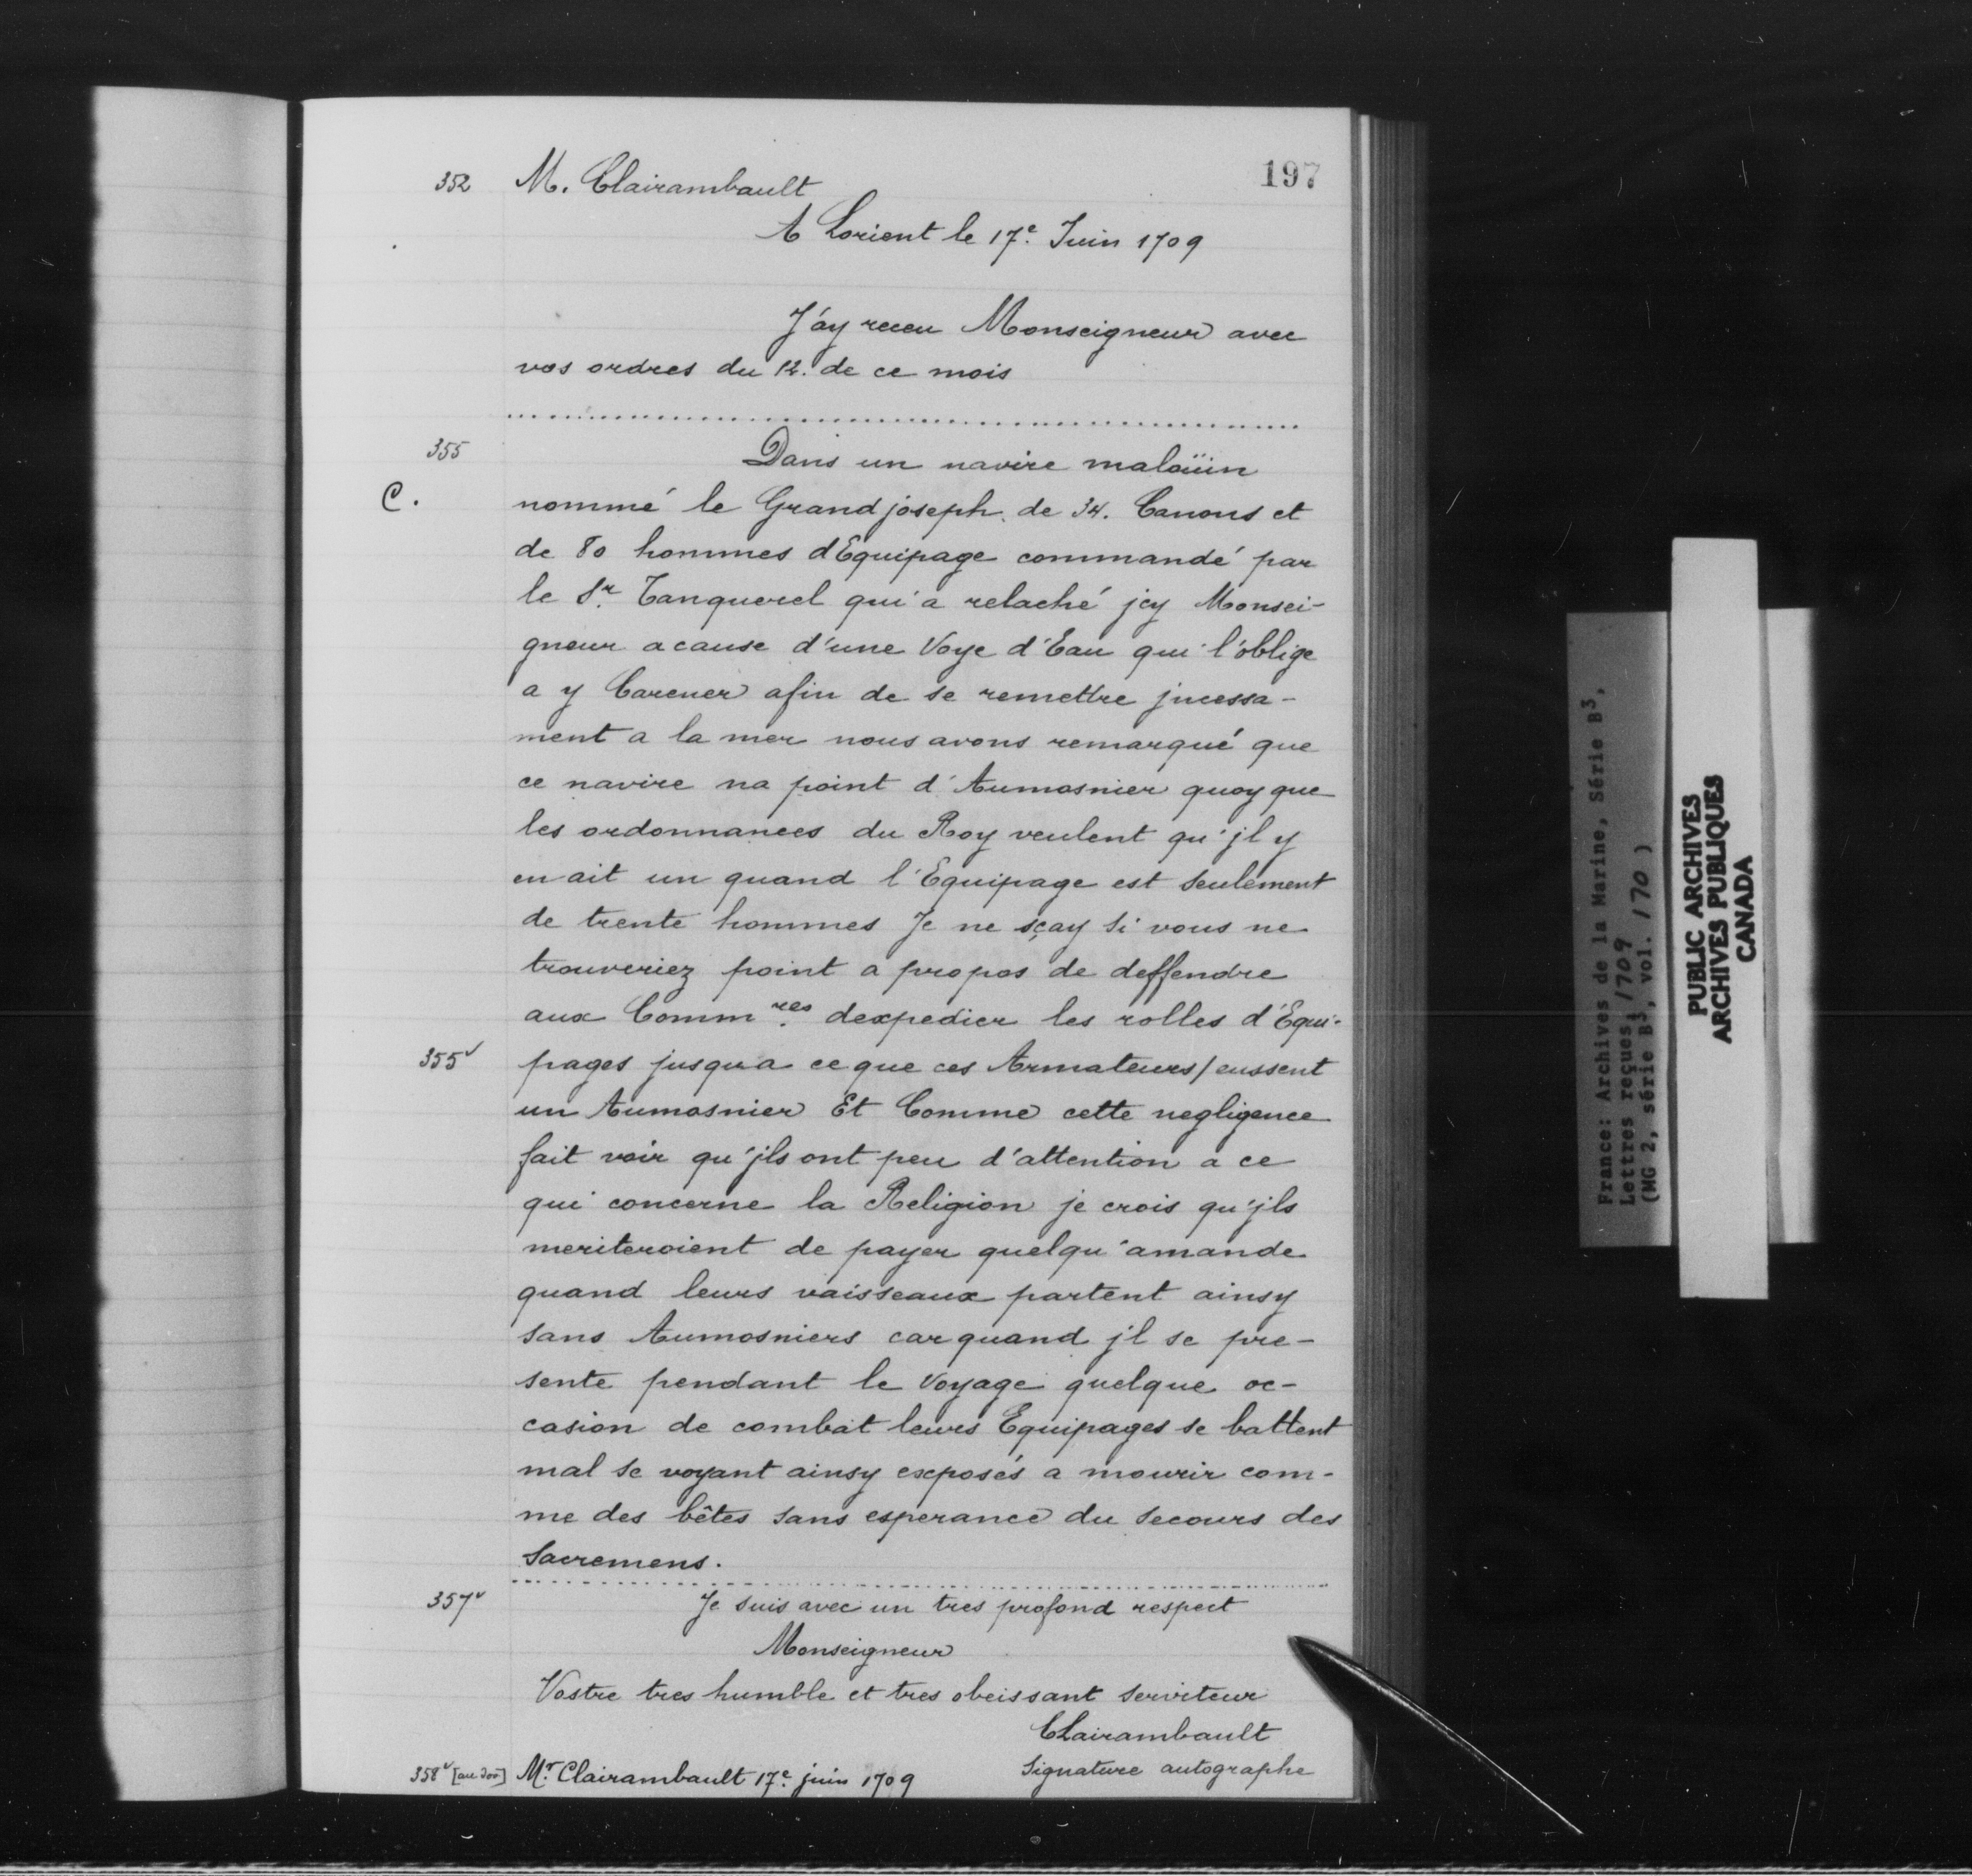 197
352 M. Clairambault
A Lorient le 17.e Juin 1709
J'ay receu Monseigneur avec
vos ordres du 12. de ce mois
355
Dans un navire maloüin
C. nommé le Grand joseph. de 34. Canons et
de 80 hommes d'Equipage commandé par
le Sr. Tanquerel qui a relaché jcy Monsei-
gneur a cause d'une Voye d'Eau qui l'oblige
a y Carener afin de se remettre jncessa-
ment a la mer nous avons remarqué que
ce navire na point d'Aumosnier quoy que
les ordonnances du Roy veulent qu'jl y
en ait un quand l'Equipage est seulement
de trente hommes Je ne sçay si vous ne
trouveriez point a propos de deffendre
aux Comm.res dexpedier les rolles d'Equi-
355v pages jusqu'a ce que ces Armateurs/eussent
un Aumosnier Et Comme cette negligence
fait voir qu'jls ont peu d'attention a ce
qui concerne la Religion je crois qu'jls
meriteroient de payer quelqu'amande
quand leurs vaisseaux partent ainsy
sans Aumosniers car quand jl se pre-
sente pendant le Voyage quelque oc-
casion de combat leurs Equipages se battent
mal se voyant ainsy exposés a mourir com-
me des bêtes sans esperance du secours des
Sacremens.
357v Je suis avec un tres profond respect
Monseigneur
Vostre tres humble et tres obeissant serviteur
Clairambault
Signature autographe
358v [au dos] Mr. Clairambault 17.e juin 1709
France: Archives de la Marine, Série B3,
Lettres reçues, 1709
(MG 2, série B3, vol. 170)
PUBLIC ARCHIVES
ARCHIVES PUBLIQUES
CANADA